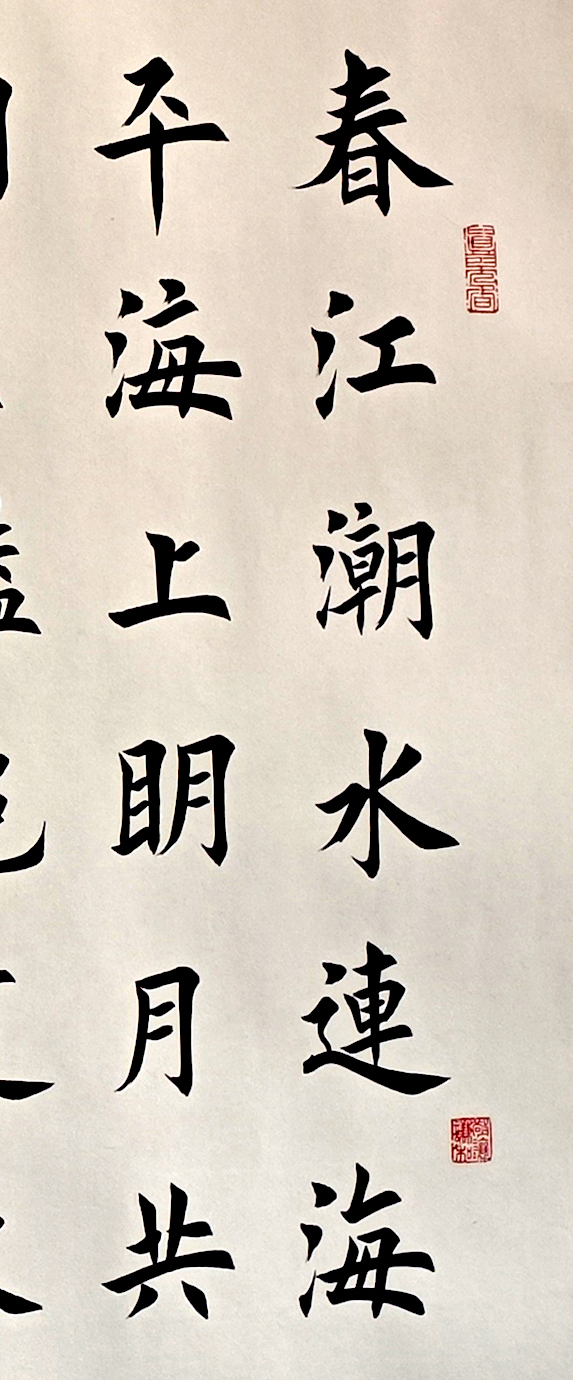 春江潮水連海
平海上明月共